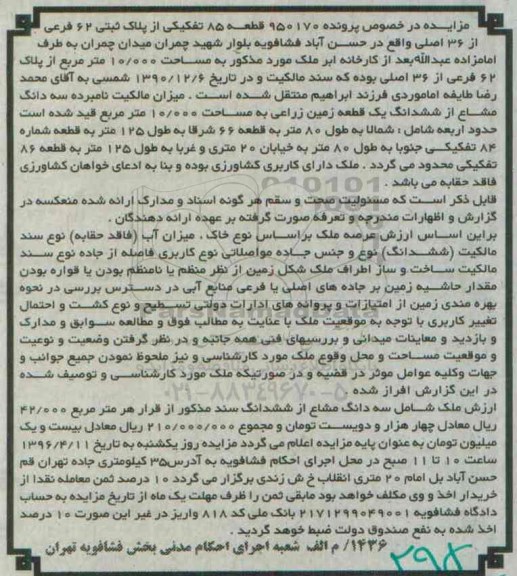 مزایده در خصوص پرونده ۹۵۰۱۷۰ قطعه ۸۵ تفکیکی از پلاک ثبتی ۶۲ فرعی
از ۳۶ اصلی واقع در حسن آباد فشافویه بلوار شهید چمران میدان چمران به طرف
امامزاده عبدالله بعد از کارخانه ابر ملک مورد مذکور به مساحت ۱۰/۰۰۰ متر مربع از پلاک
۶۲ فرعی از ۳۶ اصلی بوده که سند مالکیت و در تاریخ ۱۳۹۰/۱۲/۶ شمسی به آقای محمد
رضا طایفه اماموردی فرزند ابراهیم منتقل شده است . میزان مالکیت نامبرده سه دانگ
مشاع از ششدانگ یک قطعه زمین زراعی به مساحت ۱۰/۰۰۰ متر مربع قید شده است
حدود اربعه شامل : شمالا به طول ۸۰ متر به قطعه ۶۶ شرقا به طول ۱۲۵ متر به قطعه شماره
۸۴ تفکیکی جنوبا به طول ۸۰ متر به خیابان ۲۰ متری و غربا به طول ۱۲۵ متر به قطعه ۸۶
تفکیکی محدود می گردد . ملک دارای کاربری کشاورزی بوده و بنا به ادعای خواهان کشاورزی
فاقد حقابه می باشد .
قابل ذکر است که مسئولیت صحت و سقم هر گونه اسناد و مدارک ارائه شده منعکسه در
گزارش و اظهارات مندرجه و تعرفه صورت گرفته بر عهده ارائه دهندگان .
براین اساس ارزش عرصه ملک براساس نوع خاک ، میزان آب (فاقد حقابه) نوع سند
مالکیت (ششدانگ) نوع و جنس جاده مواصلاتی نوع کاربری فاصله از جاده نوع سند
مالکیت ساخت و ساز اطراف ملک شکل زمین از نظر منظم یا نامنظم بودن یا قواره بودن
مقدار حاشیه زمین بر جاده های اصلی یا فرعی منابع آبی در دسترس بررسی در نحوه
بهره مندی زمین از امتیازات و پروانه های ادارات دولتی تسطیح و نوع کشت و احتمال
تغییر کاربری با توجه به موقعیت ملک با عنایت به مطالب فوق و مطالعه سوابق و مدارک
و بازدید و معاینات میدانی و بررسیهای فنی همه جانبه و در نظر گرفتن وضعیت و نوعیت
و موقعیت مساحت و محل وقوع ملک مورد کارشناسی و نیز ملحوظ نمودن جمیع جوانب و
جهات وکلیه عوامل موثر در قضیه و در صورتیکه ملک مورد کارشناسی و توصیف شده
در این گزارش افراز شده
۰۲۱-۸۸۳۴۹۶۷۰-۵
ارزش ملک شامل سه دانگ مشاع از ششدانگ سند مذکور از قرار هر متر مربع ۴۲/۰۰۰
ریال معادل چهار هزار و دویست تومان و مجموع ۲۱۰/۰۰۰/۰۰۰ ریال معادل بیست و یک
میلیون تومان به عنوان پایه مزایده اعلام می گردد مزایده روز یکشنبه به تاریخ ۱۳۹۶/۴/۱۱
ساعت ۱۰ تا ۱۱ صبح در محل اجرای احکام فشافویه به آدرس۳۵ کیلومتری جاده تهران قم
حسن آباد بل امام ۲۰ متری انقلاب خ ش زندی برگزار می گردد ۱۰ درصد ثمن معامله نقدا از
خریدار اخذ و وی مکلف خواهد بود مابقی ثمن را ظرف مهلت یک ماه از تاریخ مزایده به حساب
دادگاه فشافویه ۲۱۷۱۲۹۹۰۴۹۰۰۱ بانک ملی کد ۸۱۸ واریز در غیر این صورت ۱۰ درصد
اخذ شده به نفع صندوق دولت ضبط خواهد گردید .
۱۴۳۶/ م الف شعبه اجرای احکام مدنی بخش فشافویه تهران
۲۹۸